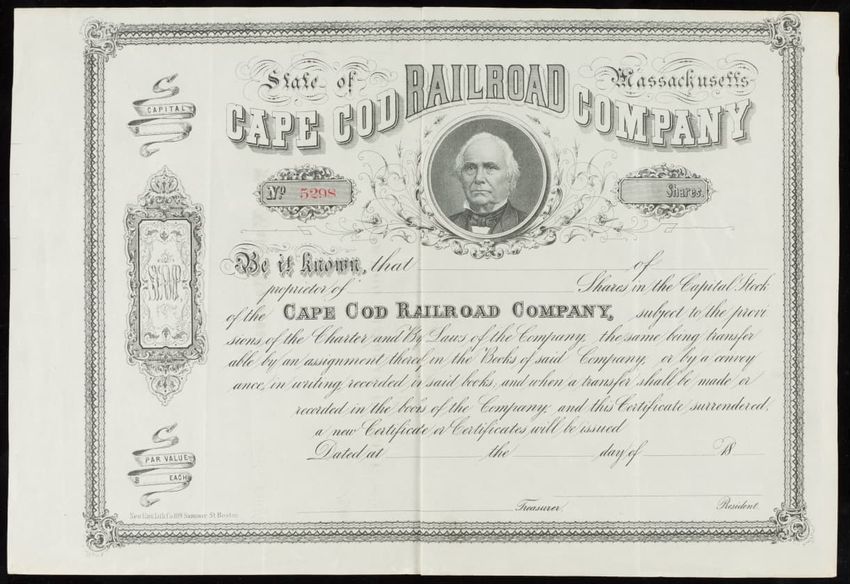 State of Massachusetts
CAPE COD RAILROAD COMPANY
CAPITAL
No 5298
Shares.
STAMP
Be it known, that of
proprietor of Shares in the Capital Stock
of the CAPE COD RAILROAD COMPANY, subject to the provi
sions of the Charter and By Laws of the Company; the same being transfer
able by an assignment thereof in the Books of said Company, or by a convey
ance, in writing, recorded in said books; and when a transfer shall be made or
recorded in the books of the Company; and this Certificate surrendered,
a new Certificate or Certificates will be issued
Dated at the day of 18
PAR VALUE
$ EACH
Treasurer. President.
Summer St Boston